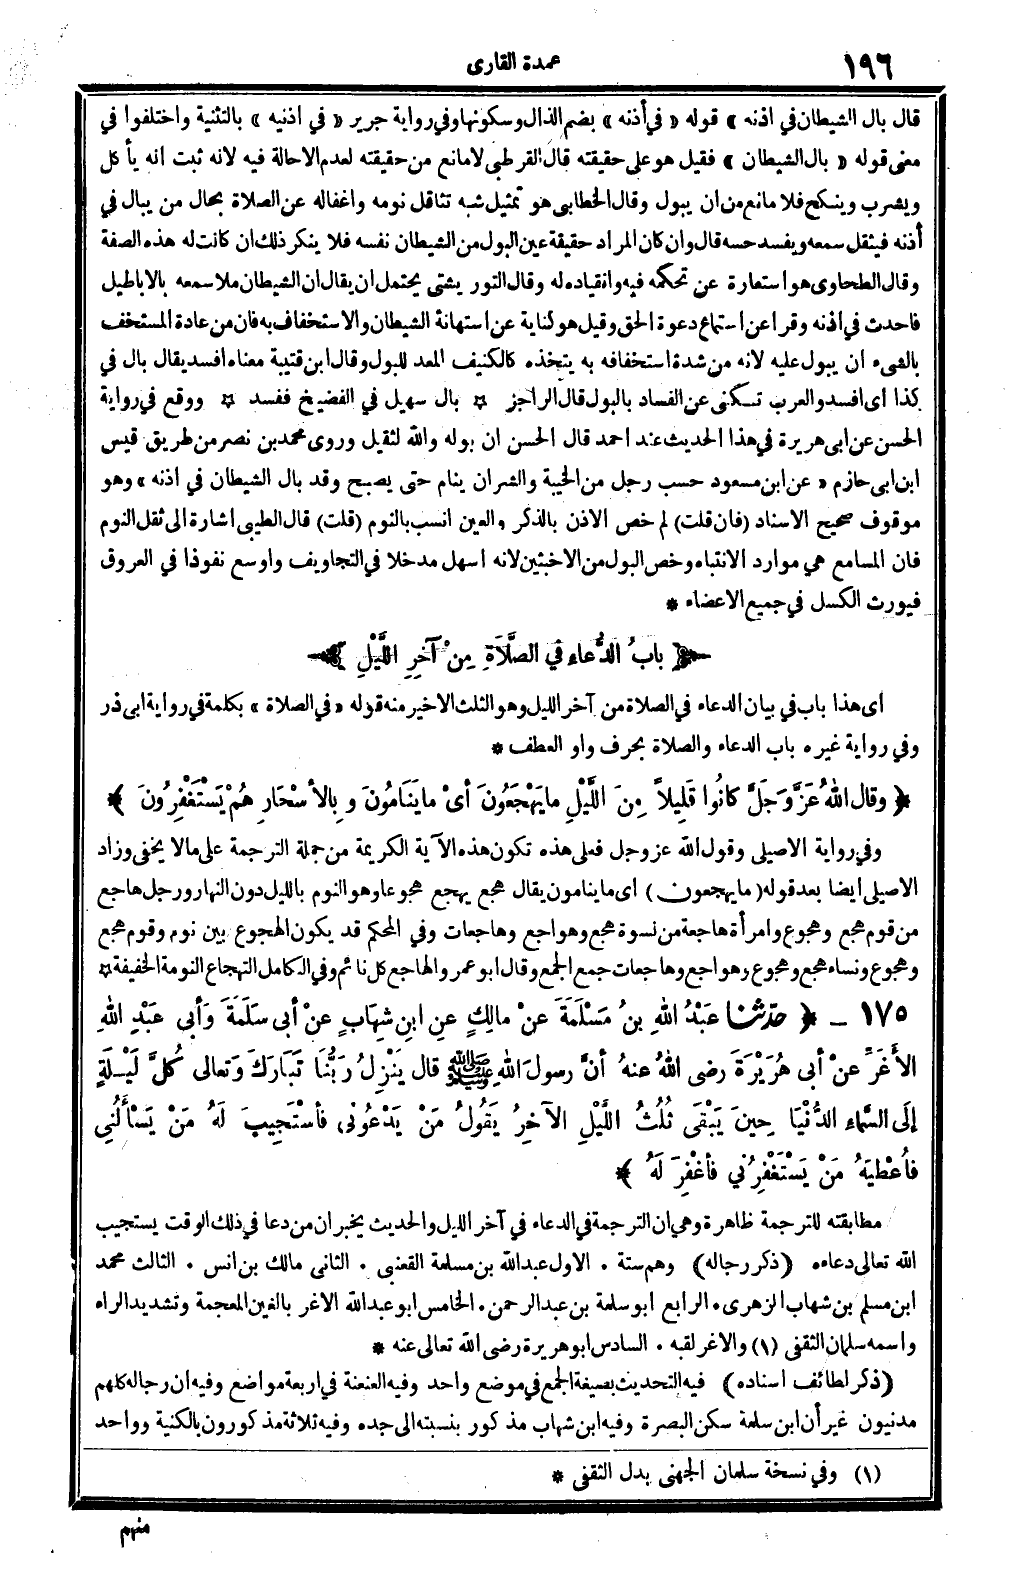 ١٩٦
عمدة القارى
قال بال الشيطان في اذنه » قوله « في أذنه » بضم الذال وسكونها وفي رواية جرير « في اذنيه » بالتثنية واختلفوا في
معنى قوله « بال الشيطان » فقيل هو على حقيقته قال القرطبى لا مانع من حقيقته لعدم الاحالة فيه لانه ثبت انه يأكل
ويشرب وينكح فلا مانع من ان يبول وقال الخطابى هو تمثيل شبه تثاقل نومه واغفاله عن الصلاة بحال من يبال في
أذنه فيثقل سمعه ويفسد حسه قال وان كان المراد حقيقة عين البول من الشيطان نفسه فلا ينكر ذلك ان كانت له هذه الصفة
وقال الطحاوى هو استعارة عن تحكمه فيه وانقياده له وقال التوربشتى يحتمل ان يقال ان الشيطان ملا سمعه بالاباطيل
فاحدث في اذنه وقرا عن استماع دعوة الحق وقيل هو كناية عن استهانة الشيطان والاستخفاف به فان من عادة المستخف
بالشىء ان يبول عليه لانه من شدة استخفافه به يتخذه كالكنيف المعد للبول وقال ابن قتيبة معناه افسد يقال بال في
كذا اى افسد والعرب تكنى عن الفساد بالبول قال الراجز ☆ بال سهيل في الفضيخ ففسد ☆ ووقع في رواية
الحسن عن ابى هريرة في هذا الحديث عند احمد قال الحسن ان بوله والله لثقيل وروى محمد بن نصر من طريق قيس
ابن ابى حازم « عن ابن مسعود حسب رجل من الخيبة والشر ان ينام حتى يصبح وقد بال الشيطان في اذنه » وهو
موقوف صحيح الاسناد (فان قلت) لم خص الاذن بالذكر والعين انسب بالنوم (قلت) قال الطيبى اشارة الى ثقل النوم
فان المسامع هي موارد الانتباه وخص البول من الاخبثين لانه اسهل مدخلا في التجاويف واوسع نفوذا في العروق
فيورث الكسل في جميع الاعضاء *
﴿ بابُ الدُّعاءِ في الصَّلَاةِ مِنْ آخِرِ اللَّيْلِ ﴾
اى هذا باب في بيان الدعاء في الصلاة من آخر الليل وهو الثلث الاخير منه قوله « في الصلاة » بكلمة في رواية ابى ذر
وفي رواية غيره باب الدعاء والصلاة بحرف واو العطف *
﴿ وقال اللهُ عَزَّ وَجَلَّ كانُوا قَلِيلاً مِنَ اللَّيْلِ ما يَهْجَعُونَ أىْ ما يَنَامُونَ وَبِالأَسْحَارِ هُمْ يَسْتَغْفِرُونَ ﴾
وفي رواية الاصيلى وقول الله عز وجل فعلى هذه تكون هذه الآية الكريمة من جملة الترجمة على ما لا يخفى وزاد
الاصيلى ايضا بعد قوله (ما يهجعون) اى ما ينامون يقال هجع يهجع هجوعا وهو النوم بالليل دون النهار ورجل هاجع
من قوم هجع وهجوع وامرأة هاجعة من نسوة هجع وهواجع وهاجعات وفي المحكم قد يكون الهجوع بين نوم وقوم هجع
وهجوع ونساء هجع وهجوع وهواجع وهاجعات جمع الجمع وقال ابو عمر والهاجع كل نائم وفي الكامل التهجاع النومة الخفيفة ☆
١٧٥ ـ ﴿ حدثنا عَبْدُ اللهِ بنُ مَسْلَمَةَ عنْ مالِكٍ عنِ ابنِ شِهابٍ عنْ أبى سَلَمَةَ وَأبى عبْدِ اللهِ
الأَغَرِّ عنْ أبى هُرَيْرَةَ رضى اللهُ عنهُ أنَّ رسولَ اللهِ ﷺ قال يَنْزِلُ رَبُّنَا تَبَارَكَ وَتعالى كُلَّ لَيْـلَةٍ
إلَى السَّماءِ الدُّنْيَا حِينَ يَبْقَى ثُلُثُ اللَّيْلِ الآخِرُ يَقُولُ مَنْ يَدْعُونِى فأسْتَجِيبَ لَهُ مَنْ يَسْأَلُنِي
فأُعْطِيَهُ مَنْ يَسْتَغْفِرُنِي فأغْفِرَ لَهُ ﴾
مطابقته للترجمة ظاهرة وهي ان الترجمة في الدعاء في آخر الليل والحديث يخبر ان من دعا في ذلك الوقت يستجيب
الله تعالى دعاءه (ذكر رجاله) وهم ستة . الاول عبدالله بن مسلمة القعنبى . الثانى مالك بن انس . الثالث محمد
ابن مسلم بن شهاب الزهرى . الرابع ابو سلمة بن عبد الرحمن . الخامس ابو عبدالله الاغر بالغين المعجمة وتشديد الراء
واسمه سلمان الثقفى (١) والاغر لقبه . السادس ابو هريرة رضى الله تعالى عنه *
(ذكر لطائف اسناده) فيه التحديث بصيغة الجمع في موضع واحد وفيه العنعنة في اربعة مواضع وفيه ان رجاله كلهم
مدنيون غير أن ابن سلمة سكن البصرة وفيه ابن شهاب مذكور بنسبته الى جده وفيه ثلاثة مذكورون بالكنية وواحد
(١) وفي نسخة سلمان الجهنى بدل الثقفى *
منهم